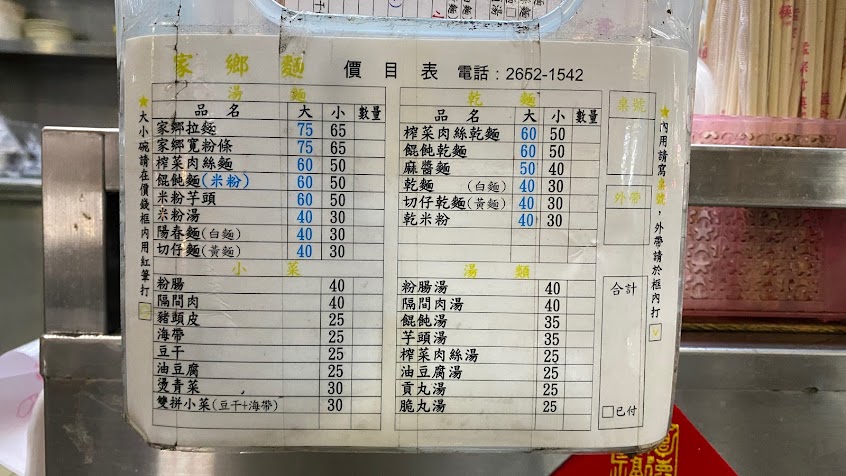 家鄉麵 價目表 電話：2652-1542
湯麵
品名 大 小 數量
家鄉拉麵 75 65
家鄉寬粉條 75 65
榨菜肉絲麵 60 50
餛飩麵(米粉) 60 50
米粉芋頭 60 50
米粉湯 40 30
陽春麵(白麵) 40 30
切仔麵(黃麵) 40 30
小菜
粉腸 40
隔間肉 40
豬頭皮 25
海帶 25
豆干 25
油豆腐 25
燙青菜 30
雙拼小菜(豆干+海帶) 30
乾麵
品名 大 小 數量
榨菜肉絲乾麵 60 50
餛飩乾麵 60 50
麻醬麵 50 40
乾麵 (白麵) 40 30
切仔乾麵(黃麵) 40 30
乾米粉 40 30
湯類
粉腸湯 40
隔間肉湯 40
餛飩湯 35
芋頭湯 35
榨菜肉絲湯 25
油豆腐湯 25
貢丸湯 25
脆丸湯 25
桌號
外帶
合計
□已付
★大小碗請在價錢框內用紅筆打☑
★內用請寫桌號，外帶請於框內打☑